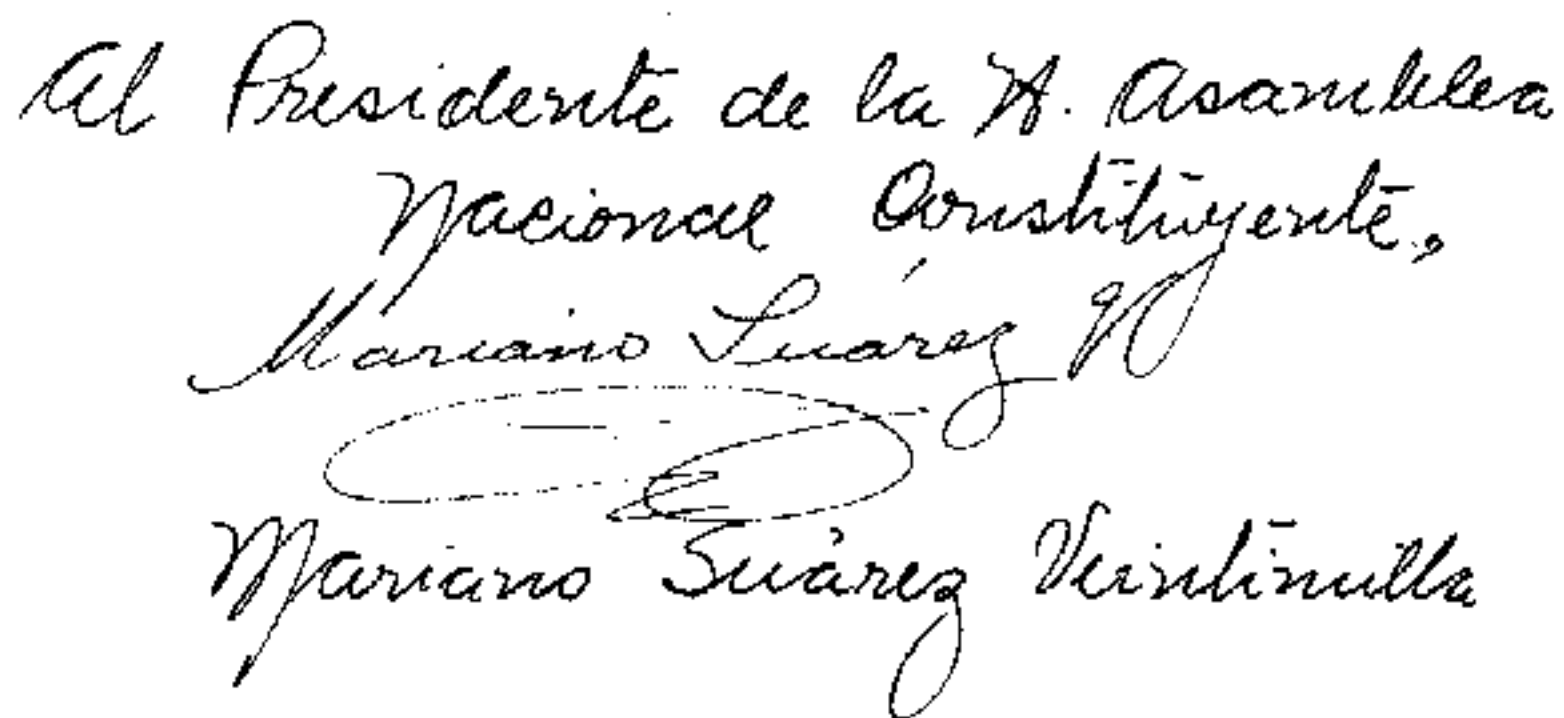 Al Presidente de la H. Asamblea
Nacional Constituyente,
Mariano Suárez V
Mariano Suárez Veintimilla